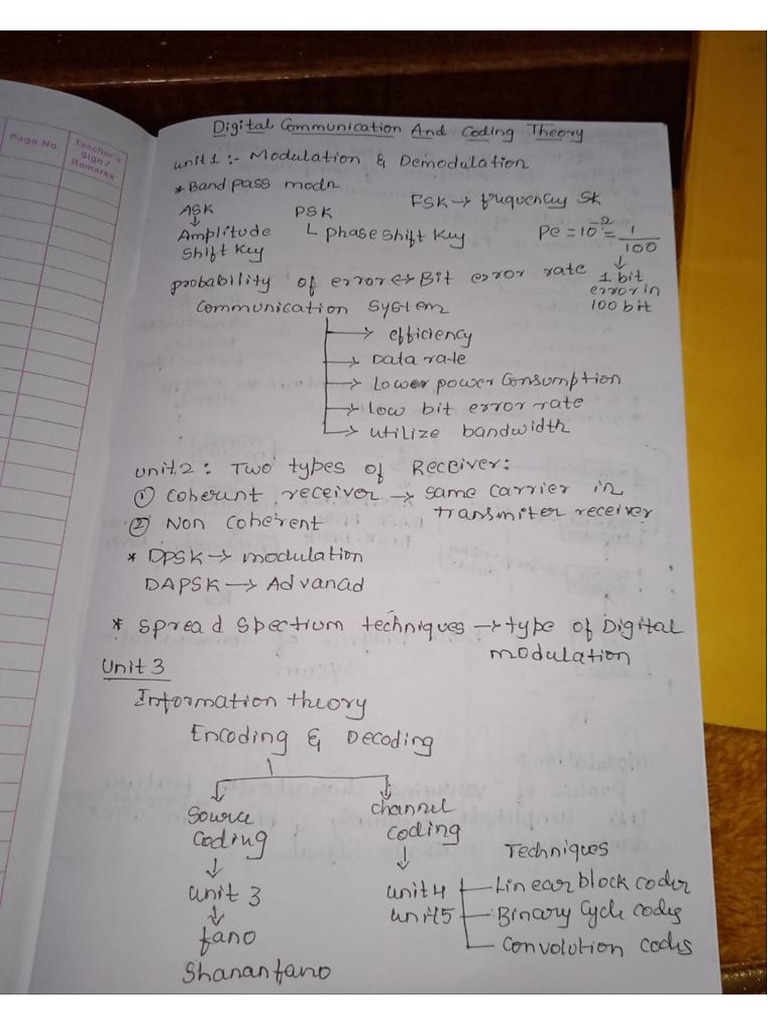 Page No.
Teacher's Sign / Remarks
Digital Communication And Coding Theory
unit 1 :- Modulation & Demodulation
* Band pass modn
ASK PSK FSK → frequency SK
↓
Amplitude Shift Key
└ phase shift Key
Pe = 10⁻² = 1/100
↓
1 bit error in 100 bit
probability of error ↔ Bit error rate
Communication System
→ efficiency
→ Data rate
→ lower power Consumption
→ low bit error rate
→ utilize bandwidth
unit 2 : Two types of Receiver :
① Coherunt receiver → same carrier in transmiter receiver
② Non Coherent
* DPSK → modulation
DAPSK → Advanad
* Spread Spectrum techniques → type of Digital modulation
Unit 3
Information theory
Encoding & Decoding
Source coding
↓
unit 3
↓
fano
Shananfano
channel coding
↓
unit 4
unit 5
Techniques
Linear block coder
Binary Cycle codes
Convolution codes